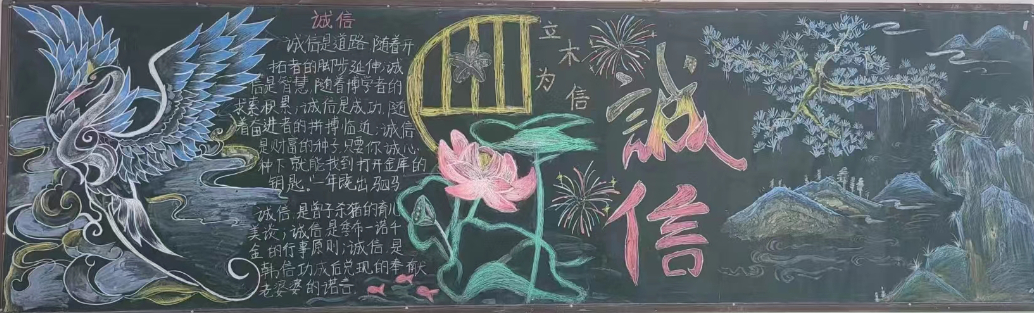 诚信
诚信是道路,随着开
拓者的脚步延伸;诚
信是智慧,随着博学者的
求索积累;诚信是成功,随
着奋进者的拼搏临近;诚信
是财富的种子,只要你诚心
种下,就能找到打开金库的
钥匙。一年
诚信,是曾子杀猪的育儿
美谈;诚信是季布一诺千
金的行事原则;诚信是
韩信功成后兑现的奉献
老婆婆的诺言。
立木为信
誠信